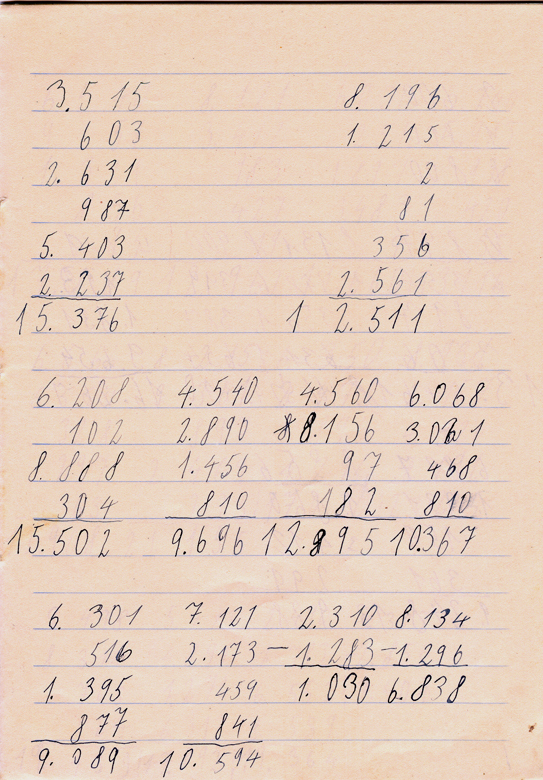 3.515 8.196
603 1.215
2.631 2
987 81
5.403 356
2.237 2.561
15.376 12.511
6.208 4.540 4.560 6.068
102 2.890 8.156 3.021
8.888 1.456 97 468
304 810 182. 810
15.502 9.696 12.995 10.367
6.301 7.121 2.310 8.134
516 2.173 - 1.283 - 1.296
1.395 459 1.030 6.838
877 841
9.089 10.594